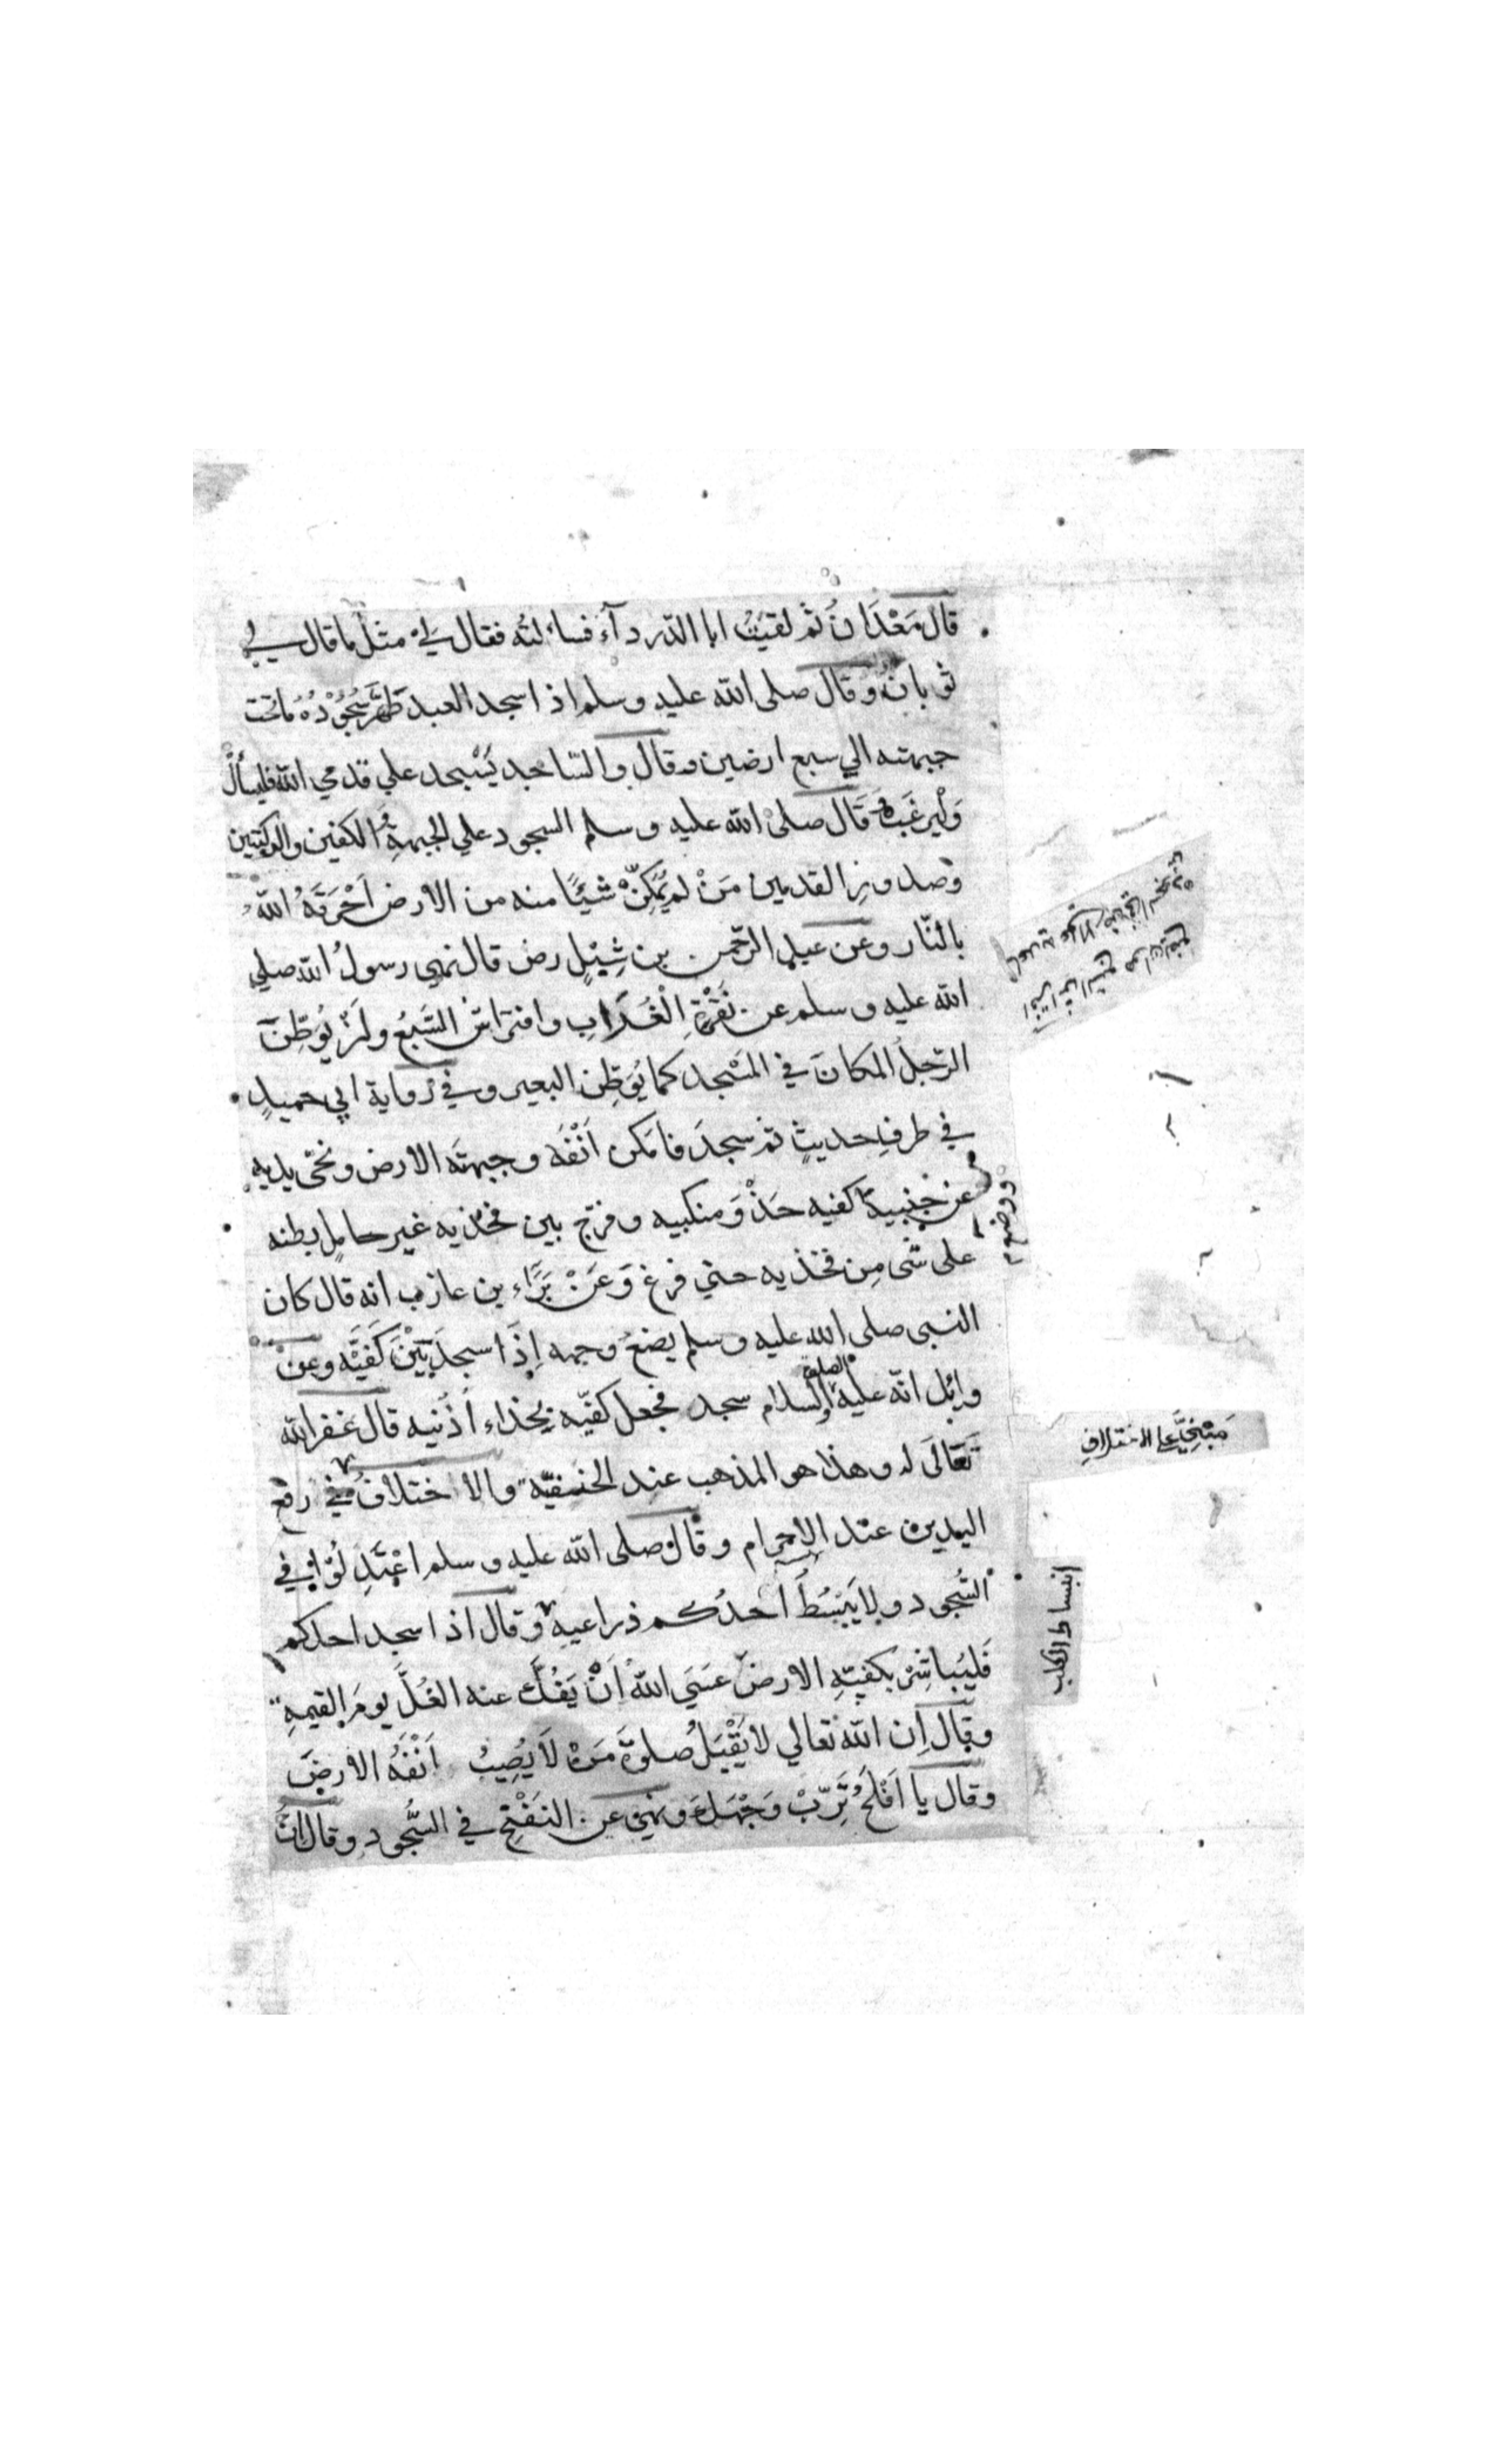 قال مَعْدَانُ ثم لقيتُ ابا الدّرداء فسائلتُه فقال لِيْ مثلُ ما قال لي
ثوبانُ وقال صلى الله عليه وسلم اذا سجد العبد طَهَّرَ سُجُوْدُهُ ماتحت
جبهته الي سبع ارضين وقال والسّاجد يَسْجد علي قدمي الله فليسألْ
وَلْيرغَبْ وَقَال صلىْ الله عليه وسلم السجود علي الجبهةِ والكفين والركبتين
وصدورِ القدمين مَنْ لم يُمَكِّنْ شيئًا منه من الارض اَحْرَقَهُ اللهُ
بالنّار وعن عبد الرّحمن بن شِبْلٍ رض قال نهي رسولُ الله صلي
الله عليه وسلم عن نَقْرَةِ الْغُرَابِ وافتراشِ السَّبُعِ واَنْ يُوَطِّنَ
الرّجلُ المكانَ في المَسْجد كما يُوَطِّن البعير وفي رواية ابي حميدٍ
في طرفِ حديثٍ ثم سجدَ فامكن اَنْفَه وجبهتَه الارض ونحّى يديه
عن جنبيه كفيه حَذْوَ منكبيه وفرّج بين فخذيه غير حاملٍ بطنه
ووضع
على شىء مِن فخذيه حتي فرغ وَعَنْ بَرَّاء بن عازب انه قال كان
النبي صلى الله عليه وسلم يضعُ وجهه اِذَا سجدَ بَيْنَ كَفَّيْه وعن
وائِل انّه عليه الصلوة والسلام سجد فجعل كفّيه بحذاء اُذُنيه قال غفر الله
تَعَالَى له وهذا هو المذهب عند الحنفيّة والاختلافُ في رفع
مَبْنِيٌّ علي الاختلافِ
اليدين عند الاحرام وقال صلى الله عليه وسلم اعْتَدِلُوْا في
السُّجود ولا يَبْسُطْ احدُكم ذراعيهِ وقال اذا سجد احدكم
انبساط الكلب
فَليُباشِرْ بكفيّهِ الارضَ عَسَي اللهُ اَنْ يَفُكَّ عنه الغُلَّ يومَ القيمةِ
وقال اِن الله تعالي لا يَقْبَلُ صلوةَ مَنْ لَا يُصِيبُ اَنْفُهُ الارضَ
وقال يا اَفْلَحُ تَرِّبْ وَجْهَكَ ونهي عن النَفْخِ في السُّجود وقال انّ